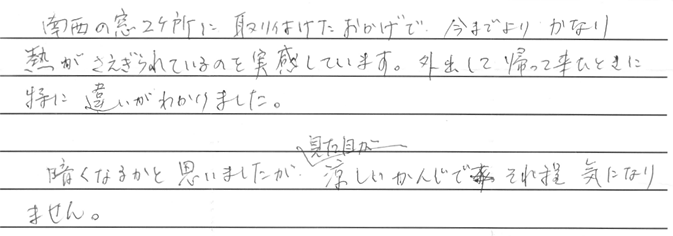 南西の窓2ケ所に取り付けたおかげで、今までよりかなり
熱がさえぎられているのを実感しています。外出して帰って来たときに
特に違いがわかりました。
見た目が
暗くなるかと思いましたが、涼しいかんじでそれ程気になり
ません。